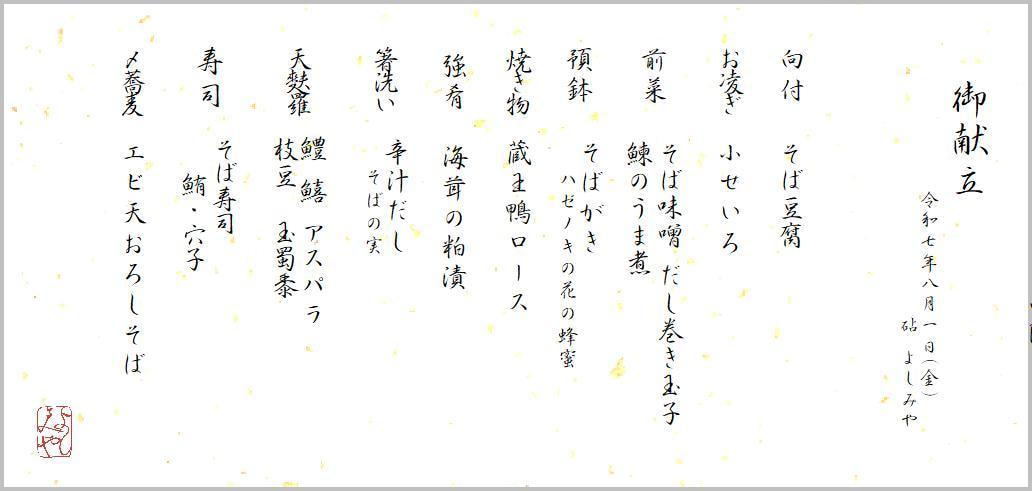 御献立
令和七年八月一日(金)
砧 よしみや
向付 そば豆腐
お凌ぎ 小せいろ
前菜 そば味噌 だし巻き玉子
鰊のうま煮
預鉢 そばがき
ハゼノキの花の蜂蜜
焼き物 蔵王鴨ロース
強肴 海茸の粕漬
箸洗い 辛汁だし
そばの実
天麩羅 鱧 鱚 アスパラ
枝豆 玉蜀黍
寿司 そば寿司
鮪・穴子
〆蕎麦 エビ天おろしそば
よしみや